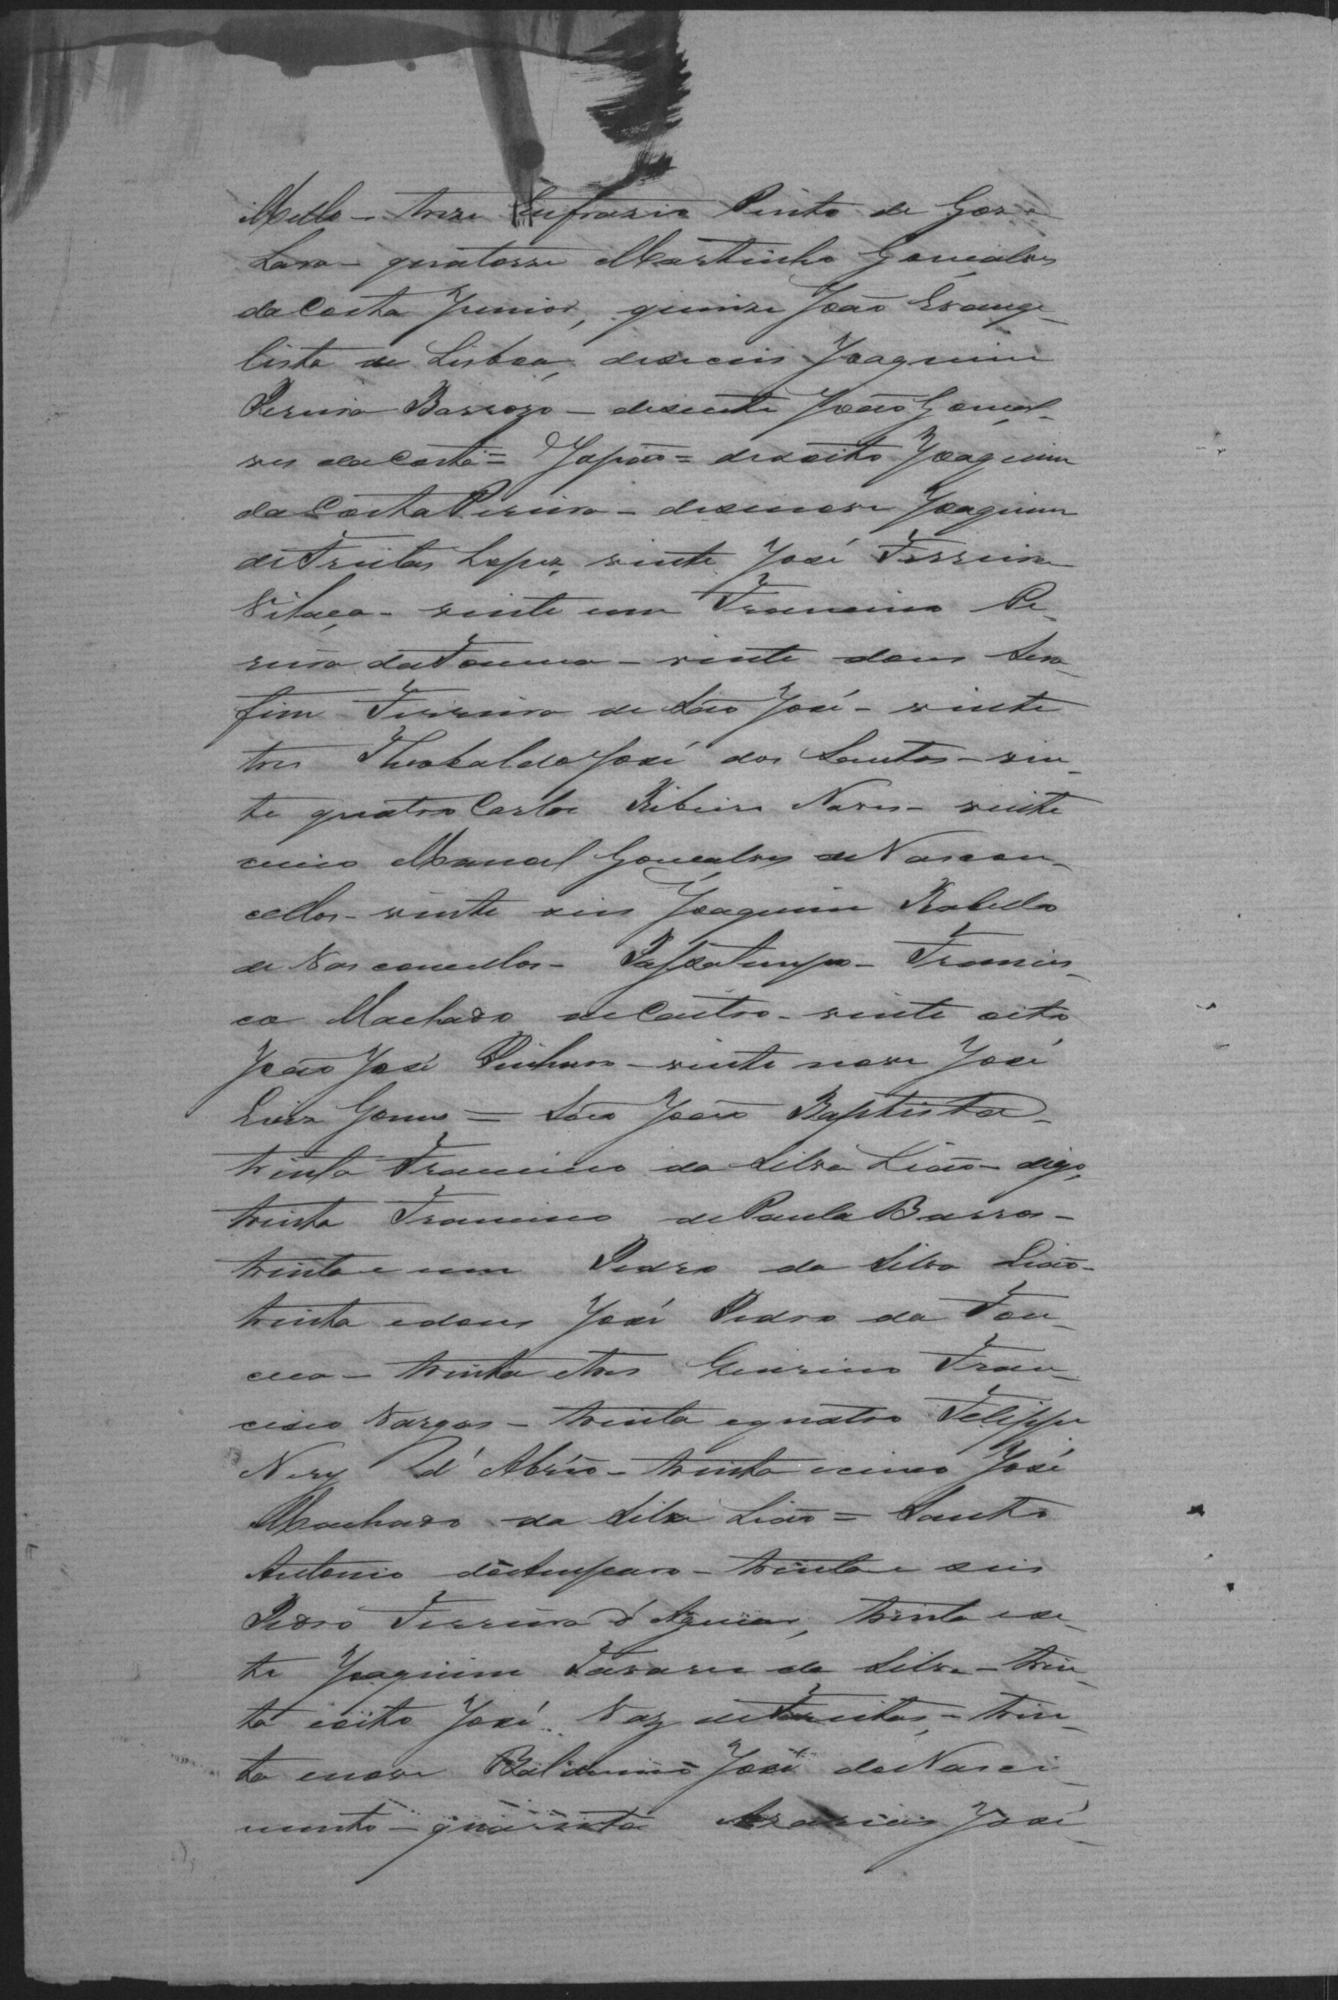 Mello - treze Eufrazio Pinto de Goz-
Lara - quatorze Martinho Gonçalves
da Costa Junior, quinze João Evange-
lista de Lisboa, deseceis Joaquim
Pereira Barrozo - desesete João Gonçal-
ves da Costa = Japão = dezoito Joaquim
da Costa Pereira - desenove Joaquim
de Freitas Lopez, vinte José Ferreira
Vilaça - vinte um Francisco Pe-
reira da Fonseca - vinte dous Sera-
fim Ferreira de São José - vinte
tres Theobaldo José dos Santos - vin-
te quatro Carlos Ribeiro Naves - vinte
cinco Manoel Gonçalves de Vascon-
cellos - vinte seis Joaquim Rabello
de Vasconcellos - Passatempo - Francis-
co Machado de Castro - vinte oito
João José Pinheiro - vinte nove José
Luiz Gomes = São João Baptista -
trinta Francisco da Silva Lião - digo,
trinta Francisco de Paula Barros -
trinta e um Pedro da Silva Lião -
trinta e dous José Pedro da Fon-
ceca - trinta e tres Francisco Vargas - trinta e quatro Felippe
Nery d'Abrêo - trinta e cinco José
Machado da Silva Lião = Santo
Antonio do Amparo - trinta e seis
Pedro Ferreira d'Aguiar, trinta e se-
te Joaquim Tavares da Silva - trin-
ta e oito José Vaz de Freitas, - trin-
ta e nove Balduino José do Nasci-
mento - quarenta Azarias José